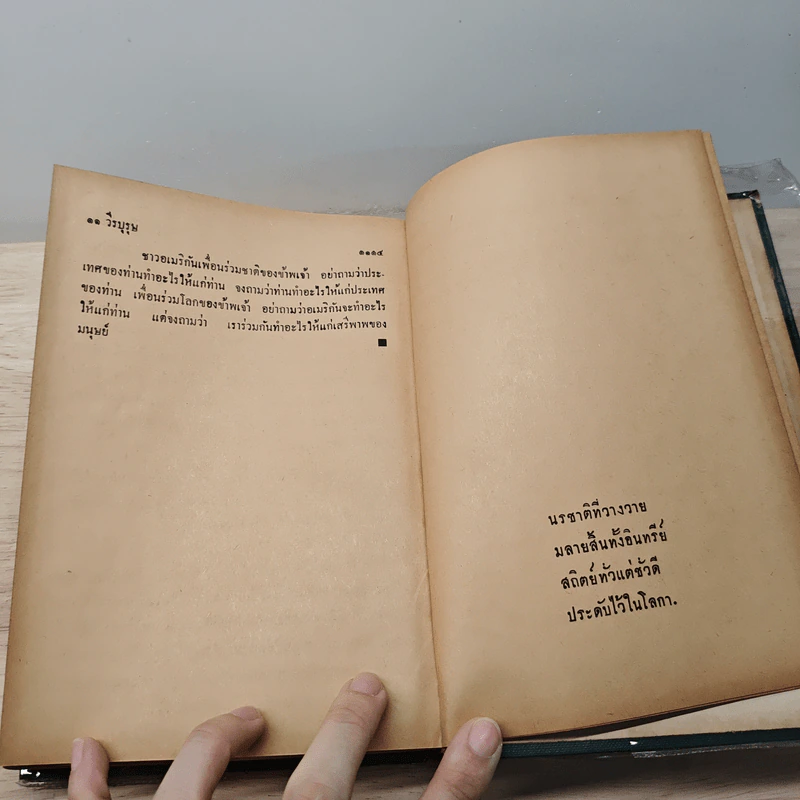 ๑๑ วีรบุรุษ
๑๑๑๕
ชาวอเมริกันเพื่อนร่วมชาติของข้าพเจ้า อย่าถามว่าประ-
เทศของท่านทำอะไรให้แก่ท่าน จงถามว่าท่านทำอะไรให้แก่ประเทศ
ของท่าน เพื่อนร่วมโลกของข้าพเจ้า อย่าถามว่าอเมริกันจะทำอะไร
ให้แก่ท่าน แต่จงถามว่า เราร่วมกันทำอะไรให้แก่เสรีพาพของ
มนุษย์
นรชาติที่วางวาย
มลายสิ้นทั้งอินทรีย์
สถิตย์ทั่วแต่ชั่วดี
ประดับไว้ในโลกา.